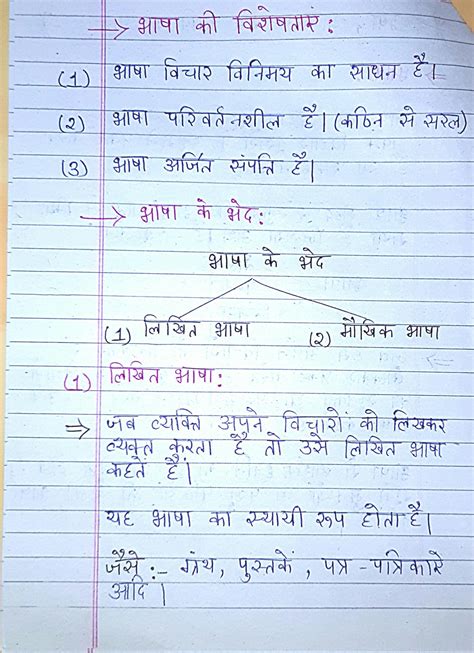 → भाषा की विशेषताएं :
(1) भाषा विचार विनिमय का साधन है।
(2) भाषा परिवर्तनशील है। (कठिन से सरल)
(3) भाषा अर्जित संपत्ति है।
→ भाषा के भेद :
भाषा के भेद
(1) लिखित भाषा (2) मौखिक भाषा
(1) लिखित भाषा :
⇒ जब व्यक्ति अपने विचारों को लिखकर
व्यक्त करता है तो उसे लिखित भाषा
कहते हैं।
यह भाषा का स्थायी रूप होता है।
जैसे :- ग्रंथ, पुस्तकें, पत्र-पत्रिकारे
आदि।